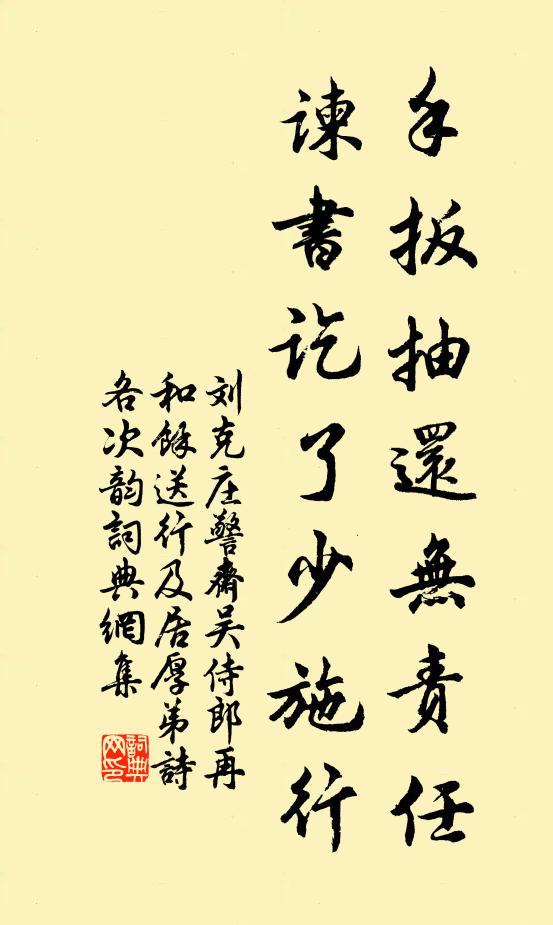 手扳抽還無責任
諫書訖了少施行
刘克庄警齋吴侍郎再
和餘送行及居厚弟詩
各次韵詞典網集
詞典网印